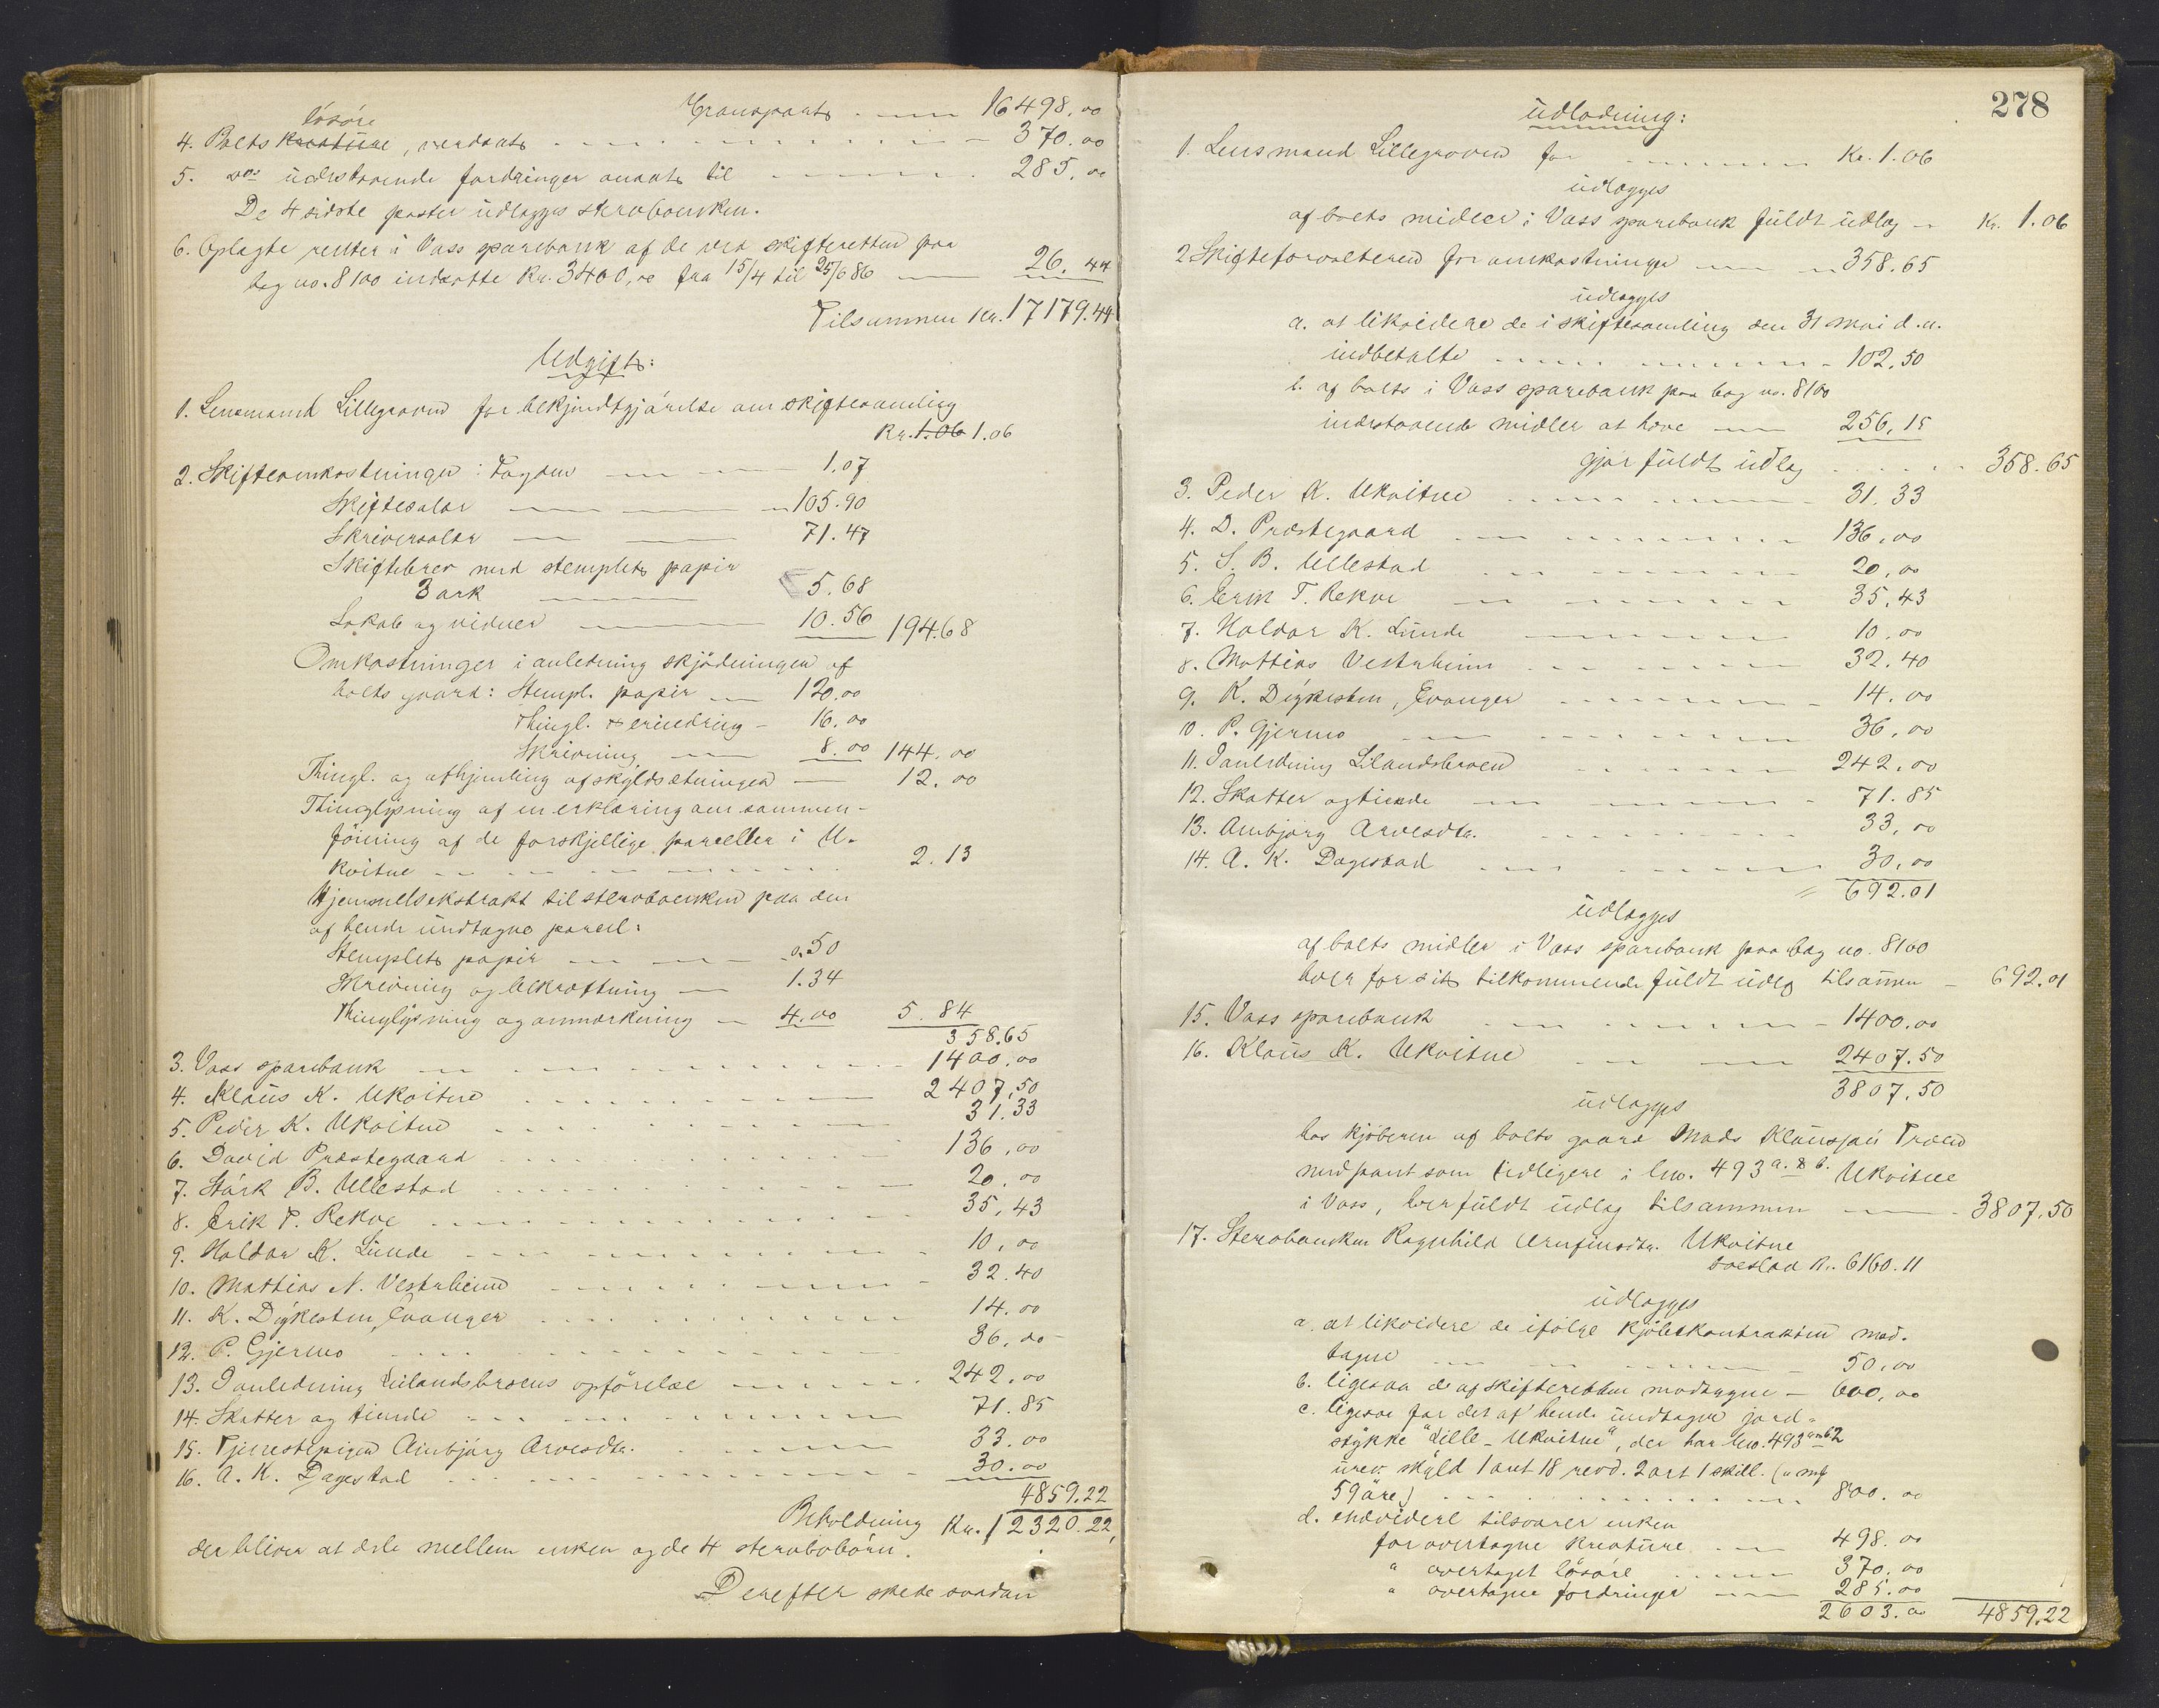 Transport . — 16498.00
løsøre
4. Boets kreature, verdsat - - - 370.00
5. do udestaaende fordringer ansat til - - - 285.00
De 4 sidste poster udlægges sterboenken.
6. Oplagte renter i Voss sparebank af de ved skifteretten paa
bog no. 8100 indsatte Kr. 3400,00 fra 15/4 til 25/6 86 — 26.44
Tilsammen Kr. 17179.44
Udgift:
1. Lensmand Lillegraven for bekjendtgjørelse om skiftesamling
Kr. 1.06 1.06
2. Skifteomkostninger: Fogden — 1.07
Skiftesalær — 105.90
Skriversalær — 71.47
Skiftebrev med stemplet papir
3 ark — 5.68
Lokale og vidner — 10.56 194.68
Omkostninger i anledning skjødningen af
boets gaard: Stempl. papir — 120.00
Thingl. & erindring - 16.00
Skrivning — 8.00 144.00
Thingl. og afhjemling af skyldsætningen — 12.00
Thinglysning af en erklæring om sammen-
føining af de forskjellige parceller i U-
kvitne - - - 2.13
Hjemmelsekstrakt til sterboenken paa den
af hende undtagne parcel:
Stemplet papir — 0.50
Skrivning og bekræftning — 1.34
Thinglysning og anmærkning — 4.00 5.84
358.65
3. Voss sparebank - - - 1400.00
4. Klaus K. Ukvitne - - - 2407.50
5. Peder K. Ukvitne - - - 31.33
6. David Præstegaard - - - 136.00
7. Stark B. Ullestad - - - 20.00
8. Erik T. Rekve - - - 35.43
9. Haldor K. Lunde - - - 10.00
10. Mathias N. Vestrheim - - - 32.40
11. K. Dykesten, Evanger - - - 14.00
12. P. Gjermo - - - 36.00
13. I anledning Lilandsbroens opførelse - - - 242.00
14. Skatter og tiende - - - 71.85
15. Tjenestepigen Ambjørg Arvesdtr. - - - 33.00
16. A. K. Dagestad - - - 30.00
4859.22
Beholdning Kr. 12320.22,
der bliver at dele mellem enken og de 4 sterbobørn.
Derefter skede saadan
278
udlodning:
1. Lensmand Lillegraven for - - - Kr. 1.06
udlægges
af boets midler i Voss sparebank fuldt udlæg — Kr. 1.06
2. Skifteforvalteren for omkostninger — 358.65
udlægges
a. at likvidere de i skiftesamling den 31 mai d.a.
indbetalte - - - 102.50
b. af boets i Voss sparebank paa bog no. 8100
indestaaende midler at hæve — 256.15
gjør fuldt udlæg - - - 358.65
3. Peder K. Ukvitne - - - 31.33
4. D. Præstegaard - - - 136.00
5. S. B. Ullestad - - - 20.00
6. Erik T. Rekve - - - 35.43
7. Haldor K. Lunde - - - 10.00
8. Mathias Vestrheim - - - 32.40
9. K. Dykesten, Evanger - - - 14.00
10. P. Gjermo - - - 36.00
11. I anledning Lilandsbroen - - - 242.00
12. Skatter og tiende - - - 71.85
13. Ambjørg Arvesdtr. - - - 33.00
14. A. K. Dagestad - - - 30.00
= 692.01
udlægges
af boets midler i Voss sparebank paa bog no. 8100
hver for sit tilkommende fuldt udlæg tilsammen — 692.01
15. Voss sparebank - - - 1400.00
16. Klaus K. Ukvitne - - - 2407.50
3807.50
udlægges
hos kjøberen af boets gaard Mads Klaussøn Træen
med pant som tidligere i lno. 493 a. & b. Ukvitne
i Voss, hver fuldt udlæg tilsammen — 3807.50
17. Sterboenken Ragnhild Arnfinsdtr. Ukvitne
boeslod Kr. 6160.11
udlægges
a. at likvidere de ifølge kjøbekontrakten mod-
tagne - - - 50.00
b. ligesaa de af skifteretten modtagne — 600.00
c. ligesaa for det af hende undtagne jord-
stykke "Lille-Ukvitne", der har lno. 493 a n 62
urev. skyld 1 ort 18 revd. 2 ort 1 skill. (u. my
59 øre) - - - 800.00
d. endvidere tilsvarer enken
for overtagne kreature - - - 498.00
" overtaget løsøre - - - 370.00
" overtagne fordringer — 285.00
2603.00 4859.22